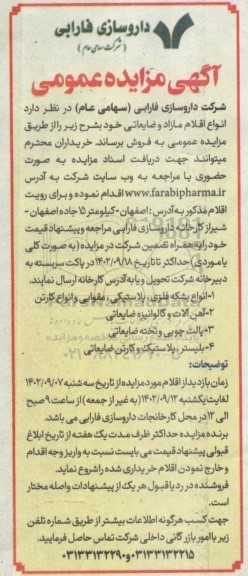 داروسازی فارابی
(شرکت سهامی عام)
آگهی مزایده عمومی
شرکت داروسازی فارابی (سهامی عام) در نظر دارد
انواع اقلام مازاد و ضایعاتی خود بشرح زیر را از طریق
مزایده عمومی به فروش برساند. خریداران محترم
میتوانند جهت دریافت اسناد مزایده به صورت
حضوری یا مراجعه به وب سایت شرکت به آدرس
www.farabipharma.ir اقدام نموده و برای رویت
اقلام مذکور به آدرس: اصفهان-کیلومتر ۱۵ جاده اصفهان-
شیراز کارخانه داروسازی فارابی مراجعه و پیشنهاد قیمت
خود را به همراه تضمین شرکت در مزایده (به صورت کلی
یا موردی) حداکثر تا تاریخ ۱۴۰۲/۰۹/۱۸ در پاکت سربسته به
دبیرخانه شرکت تحویل و یا به آدرس کارخانه ارسال نمایند.
۱-انواع بشکه فلزی، پلاستیکی، مقوایی و انواع کارتن
۲-آهن آلات و گالوانیزه ضایعاتی
۳-پالت چوبی و تخته ضایعاتی
۴-بلیستر، پلاستیک و کارتن ضایعاتی
توضیحات:
زمان بازدید از اقلام مورد مزایده از تاریخ سه شنبه ۱۴۰۲/۰۹/۰۷
لغایت یکشنبه ۱۴۰۲/۰۹/۱۲ (به غیر از جمعه) از ساعت ۹ صبح
الی ۱۲ در محل کارخانجات داروسازی فارابی می باشد.
برنده مزایده حداکثر ظرف مدت یک هفته از تاریخ ابلاغ
قبولی پیشنهاد قیمت می بایست نسبت به واریز وجه اقدام
و خارج نمودن اقلام خریداری شده را شروع نماید.
فروشنده در رد یا قبول هر یک از پیشنهادات واصله مختار
است.
جهت کسب هرگونه اطلاعات بیشتر از طریق شماره تلفن
زیر با امور بازرگانی داخلی شرکت تماس حاصل فرمایید.
۰۳۱۳۳۱۳۲۲۹۰ و ۰۳۱۳۳۱۳۲۲۱۵